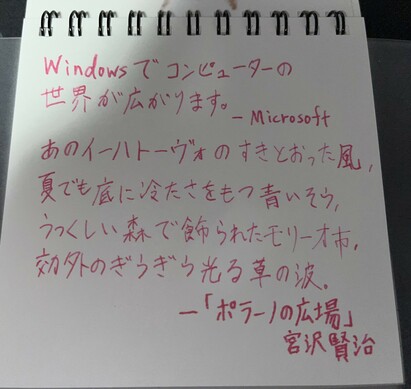 Windowsでコンピューターの
世界が広がります。
－Microsoft
あのイーハトーヴォのすきとおった風,
夏でも底に冷たさをもつ青いそら,
うつくしい森で飾られたモリーオ市,
郊外のぎらぎら光る草の波。
－「ポラーノの広場」
宮沢賢治